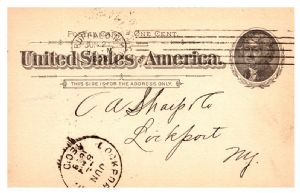 POSTAL CARD ONE CENT.
BUFFALO, N.Y.
JUN 2
United States of America.
THIS SIDE IS FOR THE ADDRESS ONLY.
C A Sharpsto
Lockport
N.Y.
LOCKPORT
JUN
REC'D